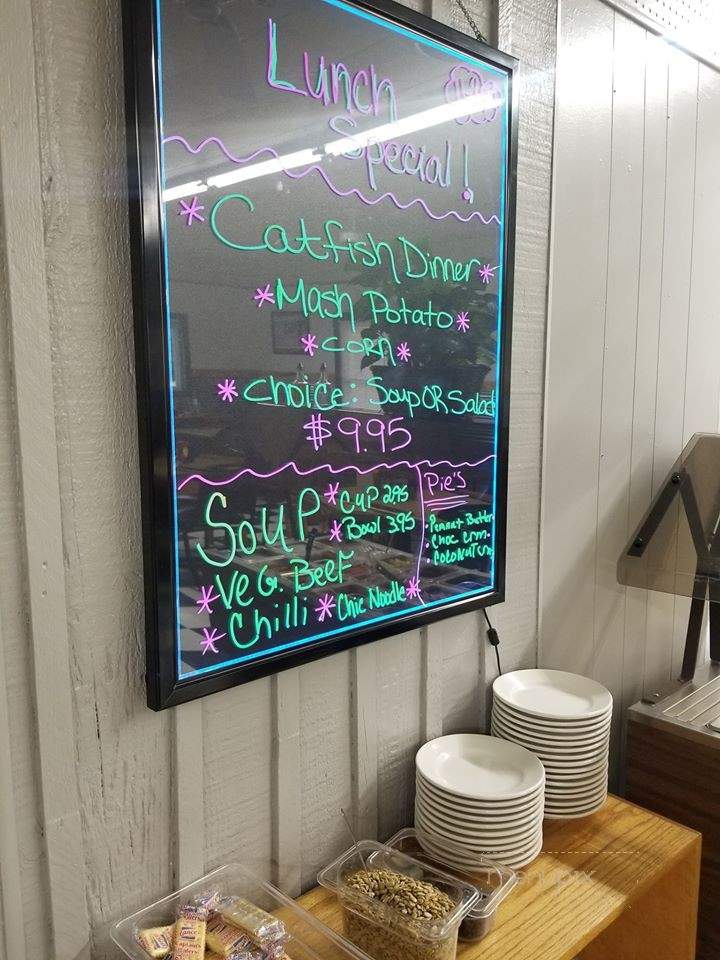 Lunch
Special!
*Catfish Dinner*
*Mash Potato*
*CORN*
*Choice: Soup OR Salad
$9.95
Soup *CUP 2.95
*Bowl 3.95
*VeG. Beef
*Chilli *Chic Noodle*
Pie's
• Peanut Butter
• Choc crm.
• COCONUT Crm
Lance
Captain's